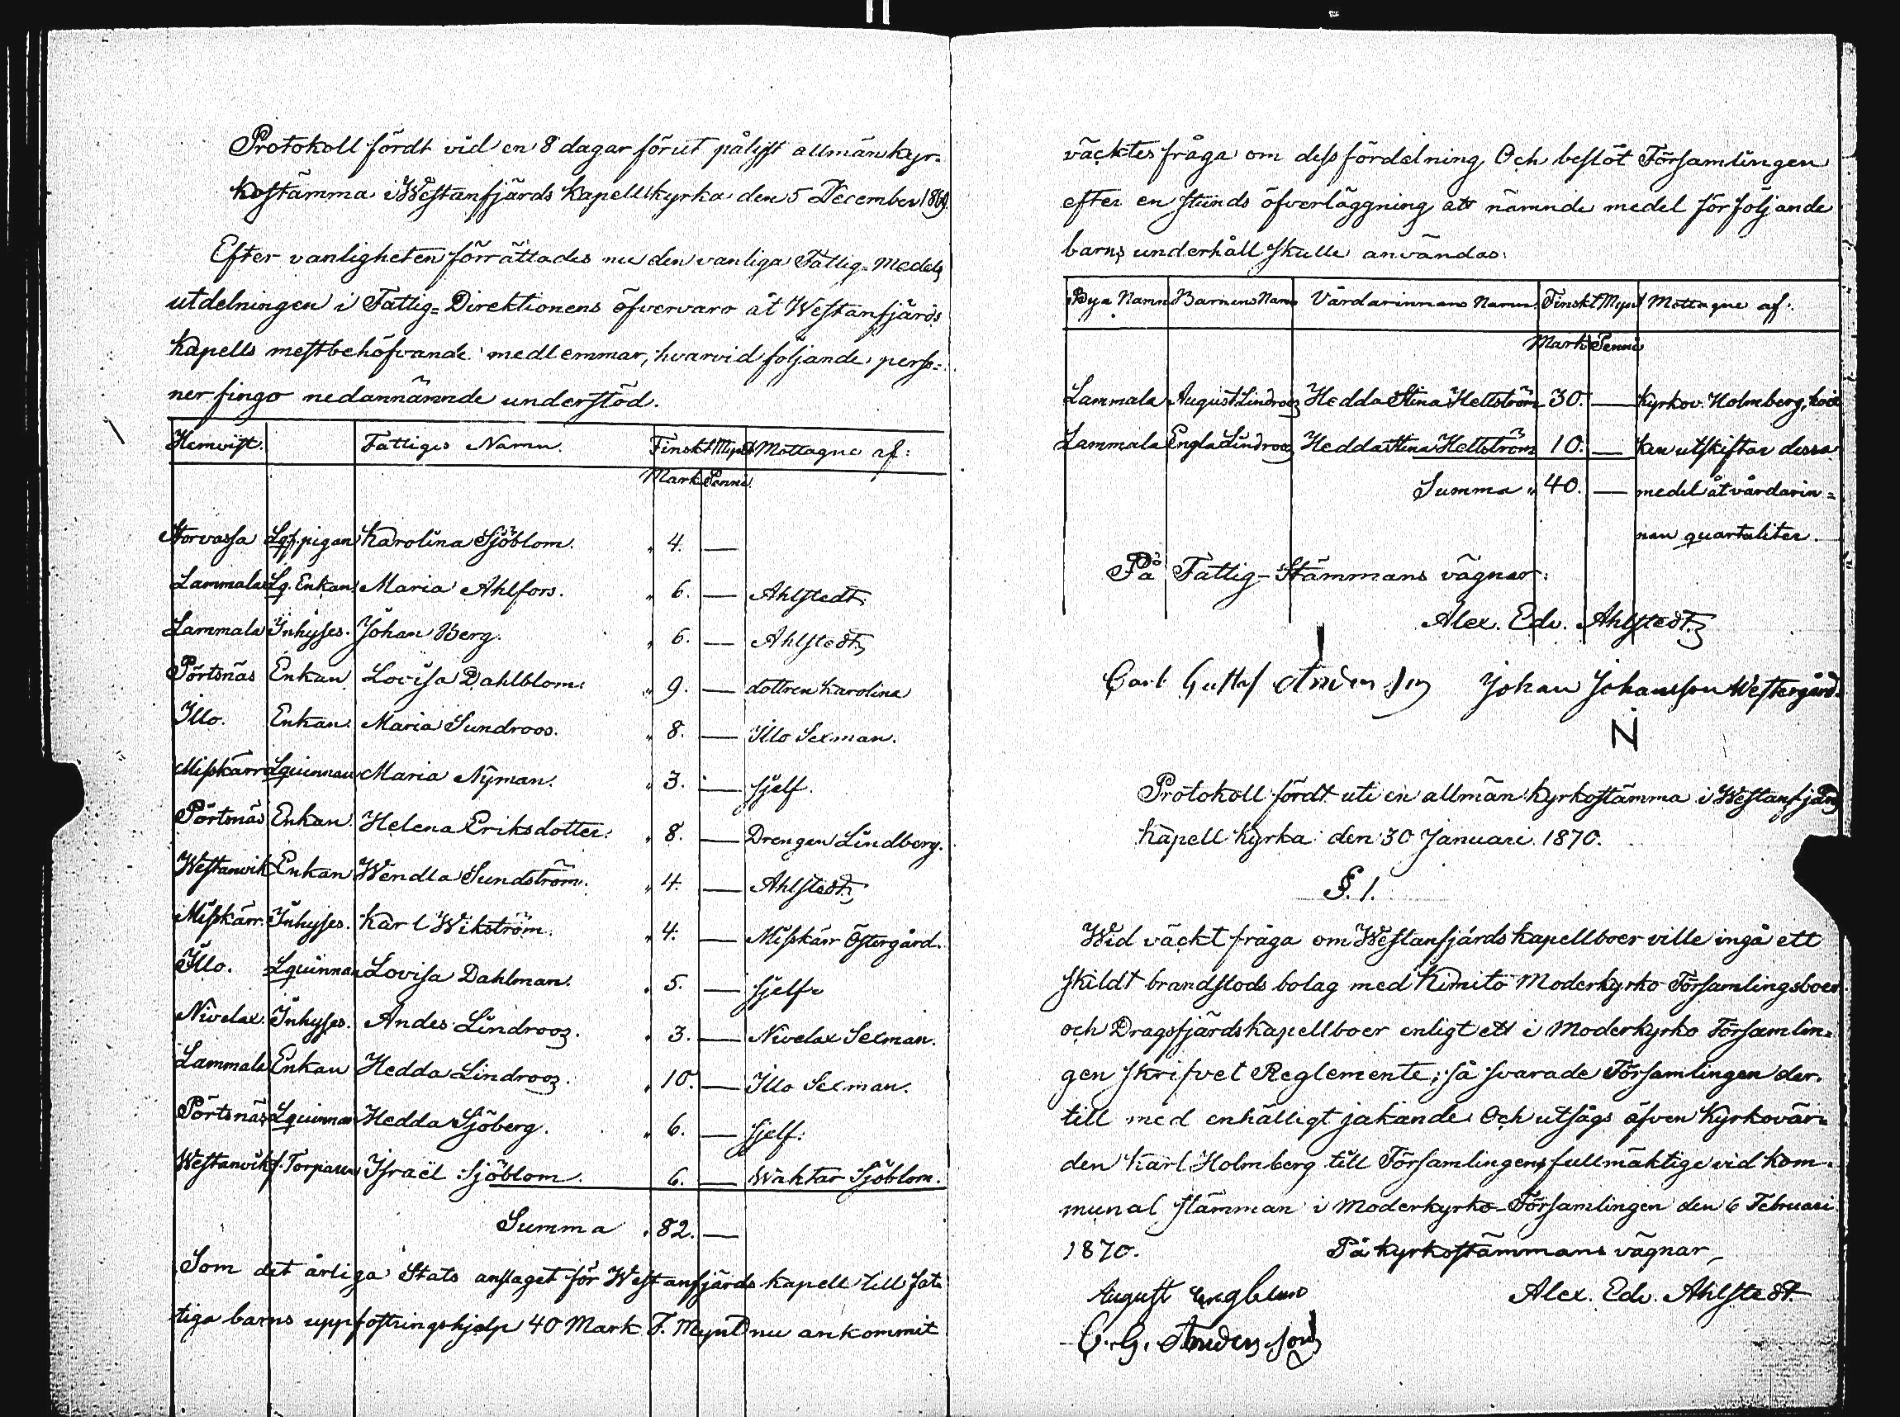 Protokoll fördt vid en 8 dagar förut pålyst allmän kyr-
kostämma i Westanfjärds Kapellkyrka den 5 December 1869.
Efter vanligheten förrättades nu den vanliga Fattig-Medels
utdelningen i Fattig-Direktionens öfvervaro åt Westanfjärds
Kapells mestbehöfvande medlemmar, hvarvid följande perso-
ner fingo nedannämnde understöd.
Hemvist. Fattiges Namn. Finskt Mynt Mottagne af:
Mark Penni.
Storvassa Lqs. pigan Karolina Sjöblom. " 4. —
Lammala Lq. Enkan Maria Ahlfors. " 6. — Ahlstedt.
Lammala Inhyses. Johan Berg. " 6. — Ahlstedt
Pörtsnäs Enkan Lovisa Dahlblom. " 9. — dottren Karolina
Illo. Enkan. Maria Sundroos. " 8. — Illo Sexman.
Misskärr Lquinnan Maria Nyman. " 3. — sjelf.
Pörtsnäs Enkan. Helena Eriksdotter. " 8. — Drengen Lindberg.
Westanvik Enkan Wendla Sundström. " 4. — Ahlstedt
Misskärr. Inhyses. Karl Wikström. " 4. — Misskärr Östergård.
Illo. Lquinnan Lovisa Dahlman. " 5. — sjelf.
Nivelax. Inhyses. Andes Lindroos. " 3. — Nivelax Sexman.
Lammala Enkan Hedda Lindroos. " 10. — Illo Sexman.
Pörtsnäs Lquinnan Hedda Sjöberg. " 6. — sjelf.
Westanvik f. Torparen Israel Sjöblom. 6. — Waktar Sjöblom.
Summa " 82. —
Som det årliga Stats anslaget för Westanfjärds kapell till fat-
tiga barns uppfostringshjelp 40 Mark F. Mynt nu ankommit
väcktes fråga om dess fördelning Och beslöt Församlingen
efter en stunds öfverläggning att nämnde medel för följande
barns underhåll skulle användas:
Bya Namn Barnens Namn Vårdarinnans Namn. Finskt Mynt Mottagne af:
Mark Penni
Lammala August Lindroos Hedda Stina Hellström 30. — Kyrkov. Holmberg, hvil-
Lammala Engla Lindroos Hedda Stina Hellström 10. — ken utskiftar dessa
Summa " 40. — medel åt vårdarin-
nan quartaliter.
På Fattig-Stämmans vägnar:
Alex. Edv. Ahlstedt.
Carl Gustaf Andersson Johan Johansson Westergård.
N
Protokoll fördt uti en allmän Kyrkostämma i Westanfjärds
Kapell Kyrka den 30 Januari 1870.
§. 1.
Wid väckt fråga om Westanfjärds kapellboer ville ingå ett
skildt brandstods bolag med Kimito Moderkyrko Församlingsboer
och Dragsfjärds kapellboer enligt ett i Moderkyrko Församlin-
gen skrifvet Reglemente; så svarade Församlingen der-
till med enhälligt jakande Och utsågs äfven Kyrkovär-
den Karl Holmberg till Församlingens fullmäktige vid Kom-
munal stämman i Moderkyrko-Församlingen den 6 Februari
1870. På kyrkostämmans vägnar,
August Engblom Alex. Edv. Ahlstedt
C. G. Andersson